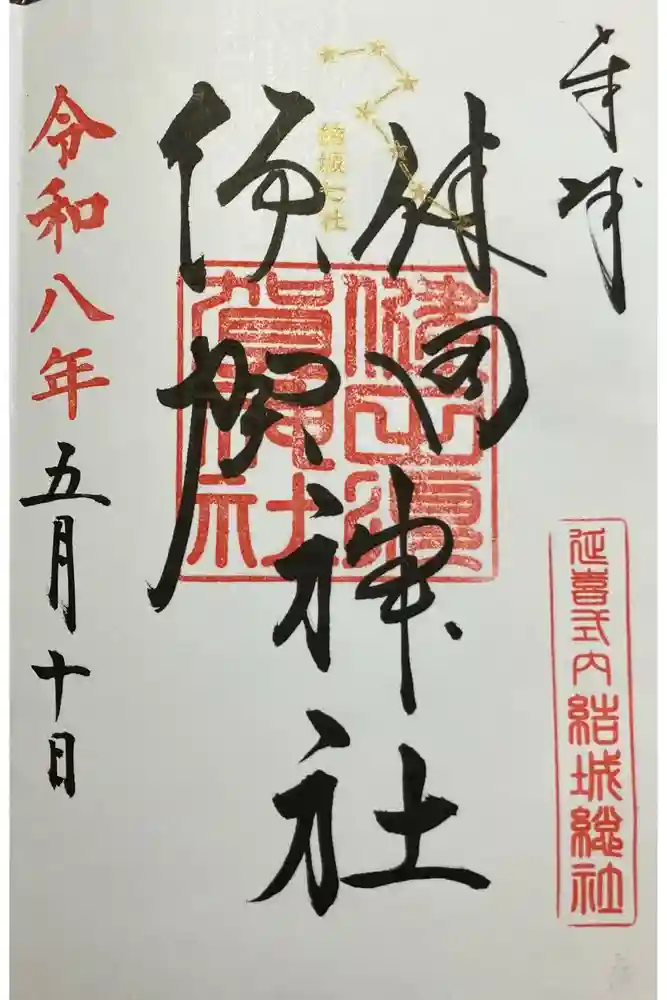 奉拝
延喜式内結城総社
健田
須賀
神社
結城七社
健田須賀神社
令和八年五月十日